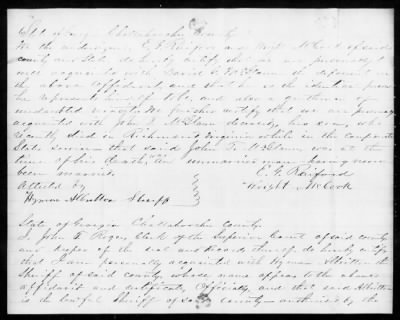 State of Georgia Chattahoochee County
We the undersigned E. G. Raiford and Wright McCook of said
county and State do certify that we are personally
well acquainted with David McGlaun deponent in
the above affidavit, and that he is the identical person
he represents himself to be, and also a man of
undoubted veracity. We further certify that we were personally
acquainted with John T. McGlaun deceased, his son, who
recently died in Richmond Virginia while in the Confederate
States service that said John T. McGlaun was at the
time of his death, "an unmarried man" having never
been married.
E. G. Raiford
Attested by
Wright McCook
Hyman Albritton Sheriff
State of Georgia Chattahoochee County.
I, John T. Rogers, Clerk of the Superior Court of said county
and keeper of the seal and records thereof do hereby certify
that I am personally acquainted with Hyman Albritton
Sheriff of said county, whose name appears to the above
affidavit and certificate, officially, and that said Albritton
is the lawful Sheriff of said county authorised by the